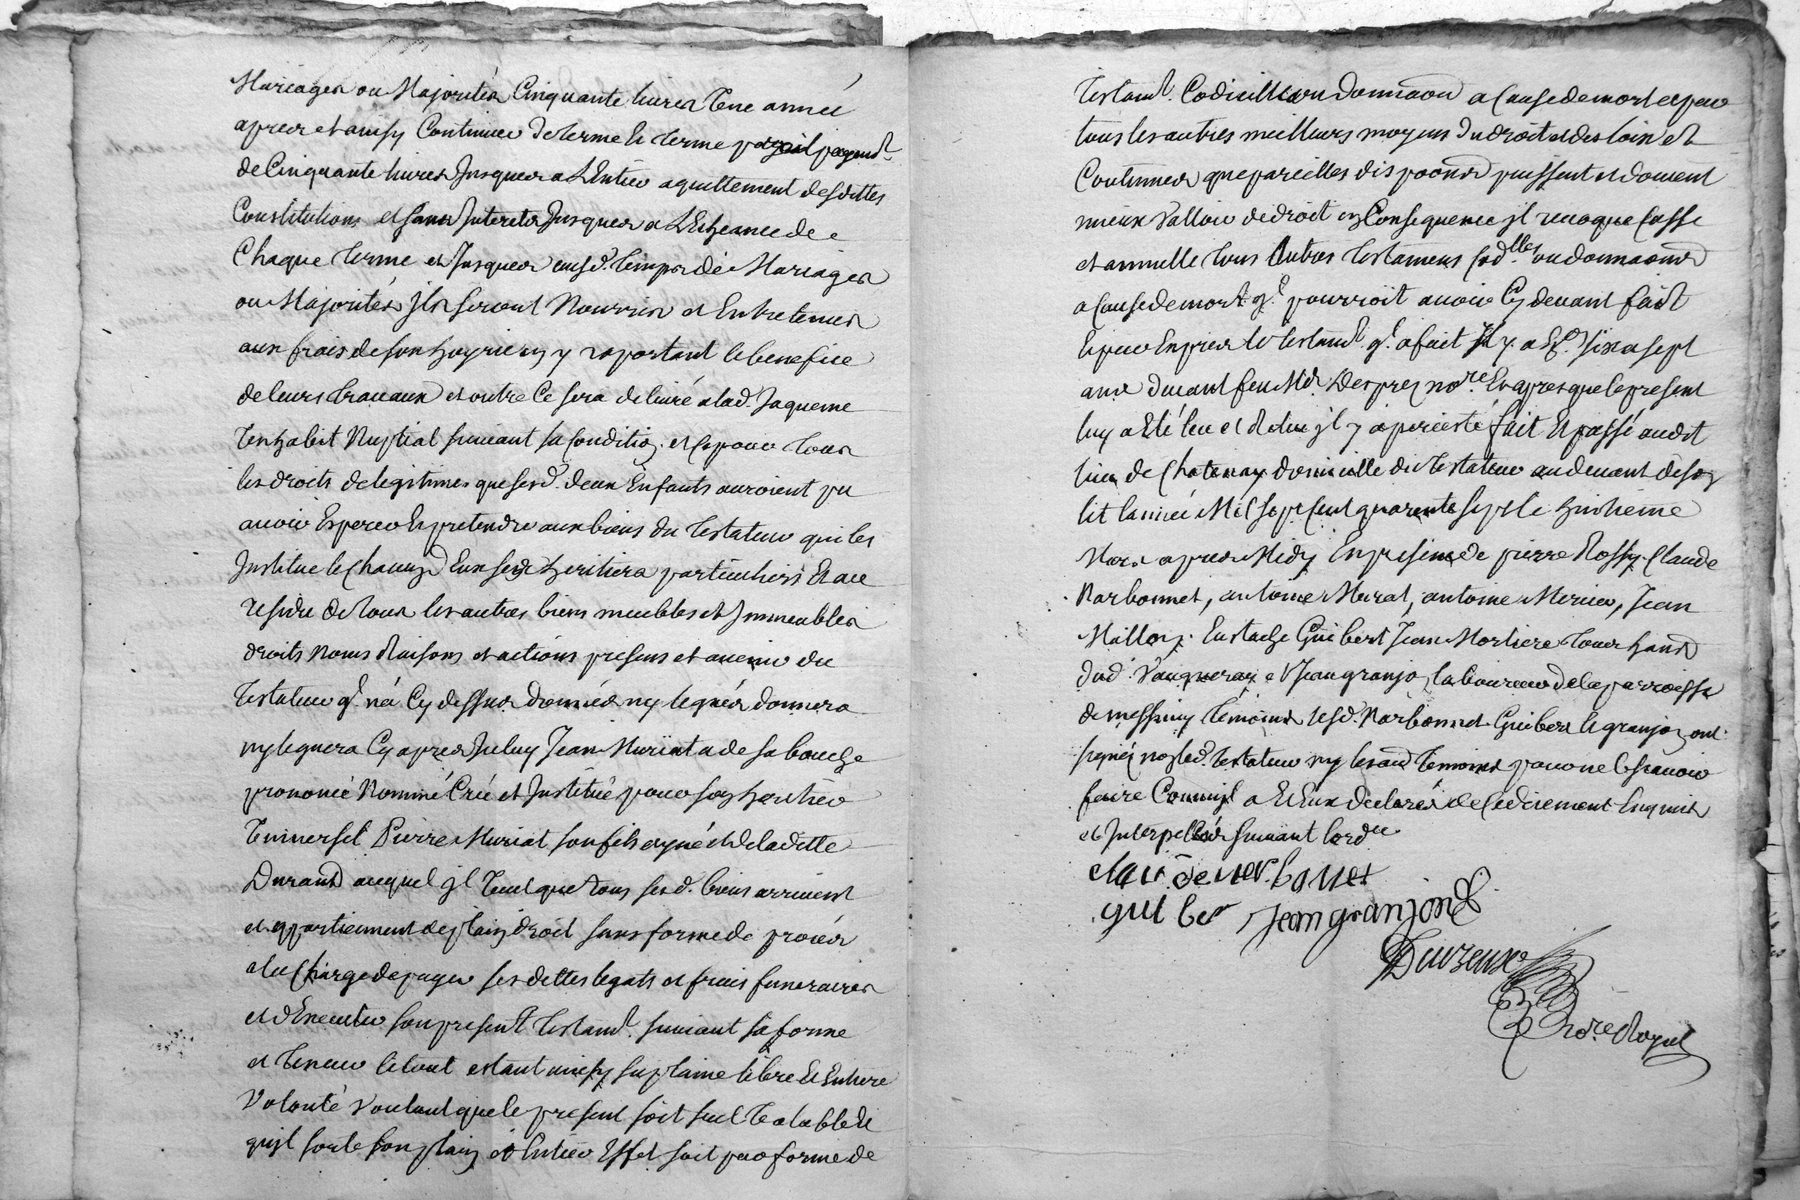 Mariages ou Majorités Cinquante livres Une année
apres et ainsy Continuer de terme En terme pareil payemt
de Cinquante livres Jusques a L'Entier aquittement desdittes
Constitutions et sans Interets Jusques a L'Echeance de
Chaque terme et Jusques ausd. temps de Mariages
ou Majorités jls seront Nourris et Entretenus
aux frais de son hoyrie en y raportant le benefice
de leurs travaux et outre Ce sera delivré a lad. Jaqueme
Un habit Nuptial suivant sa Conditio. et Ce pour tous
les droits de legitimes que sesd. deux Enfants auroient pu
avoir Esperer Et pretendre aux biens du testateur qui les
Institue le Chacun Eux ses heritiers particuliers Et au
residu de tous les autres biens meubles et Jmmeubles
droits Noms Raisons et actions presens et avenir du
testateur qt. n'a Cy dessus donnés ny legués donnera
ny leguera Cy apres Jceluy Jean Muriat a de sa bouche
prononcé Nommé Créé et Institué pour son heritier
Universel Pierre Muriat son fils ayné et de laditte
Durand auquel jl Veut que tous sesd. biens arrivent
et appartiennent de plain droit sans forme de procés
a la Charge de payer ses dettes legats et frais funeraires
et d'Executer son present testamt. suivant sa forme
et teneur le tout estant ainsy sa plaine libre Et Entiere
Volonté Voulant que le present soit seul Valable Et
qu'jl sorte son plain et Entier Effet soit par forme de
testamt. Codicille ou donnaon a Cause de mort et par
tous les autres meilleurs moyens du droit et des loix et
Coutumes que pareilles dispoons puissent et doivent
mieux Valloir de droit en Consequence jl revoque Casse
et annulle tous Autres testamens Codlles ou donnaons
a Cause de mort qt. pourroit avoir Cy devant fait
Et par Expres le testamt. qt. a fait Il y a Eh. six a sept
ans devant feu Me. Desprez nore. Et apres que le present
luy a Eté leu et Releu jl y a persisté fait Et passé audt
lieu de Chatenay domicille du testateur au devant de son
lit l'année Mil sept Cent quarente sept le huitieme
Mars apres Midy En presence de pierre Rossy Claude
Narbonnet, antoine Murat, antoine Mercier, Jean
Maillon. Eustache Guibert Jean Mortiere tous hants
dud. Vaugneray et Jean granjon laboureur de la parroisse
de messimy temoins lesd. Narbonnet Guibert Et granjon ont
signéz non led. testateur ny les aud temoins pour ne le scavoir
faire Comm'jl a Et Eux declarés de Ce direment Enquis
et Interpellés suivant l'orde
claude nar.bonnet
guiber Jean granjon
Duvzeux
nore. Royal